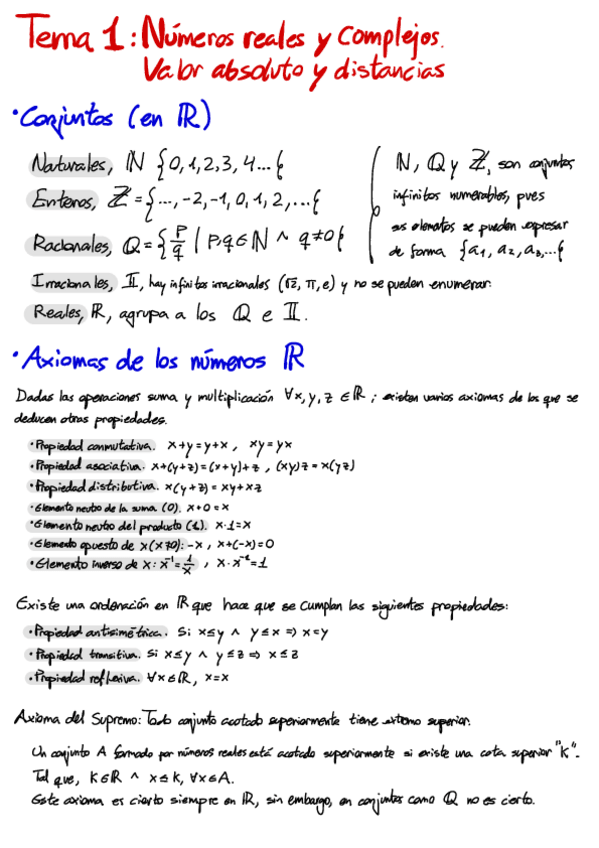 Tema 1: Números reales y complejos.
Valor absoluto y distancias
• Conjuntos (en ℝ)
Naturales, ℕ {0,1,2,3,4...{
Enteros, ℤ = {..., -2, -1, 0, 1, 2, ...{
Racionales, ℚ = { p/q | p,q ∈ ℕ ∧ q ≠ 0 {
ℕ, ℚ y ℤ, son conjuntos
infinitos numerables, pues
sus elementos se pueden expresar
de forma {a₁, a₂, a₃, ...{
Irracionales, 𝕀, hay infinitos irracionales (√2, π, e) y no se pueden enumerar.
Reales, ℝ, agrupa a los ℚ e 𝕀.
• Axiomas de los números ℝ
Dadas las operaciones suma y multiplicación ∀x,y,z ∈ ℝ; existen varios axiomas de los que se
deducen otras propiedades.
• Propiedad conmutativa. x+y=y+x, xy=yx
• Propiedad asociativa. x+(y+z)=(x+y)+z, (xy)z=x(yz)
• Propiedad distributiva. x(y+z)=xy+xz
• Elemento neutro de la suma (0). x+0=x
• Elemento neutro del producto (1). x·1=x
• Elemento opuesto de x (x≠0): -x, x+(-x)=0
• Elemento inverso de x: x⁻¹=1/x, x·x⁻¹=1
Existe una ordenación en ℝ que hace que se cumplan las siguientes propiedades:
• Propiedad antisimétrica. Si x≤y ∧ y≤x ⇒ x=y
• Propiedad transitiva. Si x≤y ∧ y≤z ⇒ x≤z
• Propiedad reflexiva. ∀x∈ℝ, x=x
Axioma del Supremo: Todo conjunto acotado superiormente tiene extremo superior.
Un conjunto A formado por números reales está acotado superiormente si existe una cota superior "K".
Tal que, K∈ℝ ∧ x≤k, ∀x∈A.
Este axioma es cierto siempre en ℝ, sin embargo, en conjuntos como ℚ no es cierto.